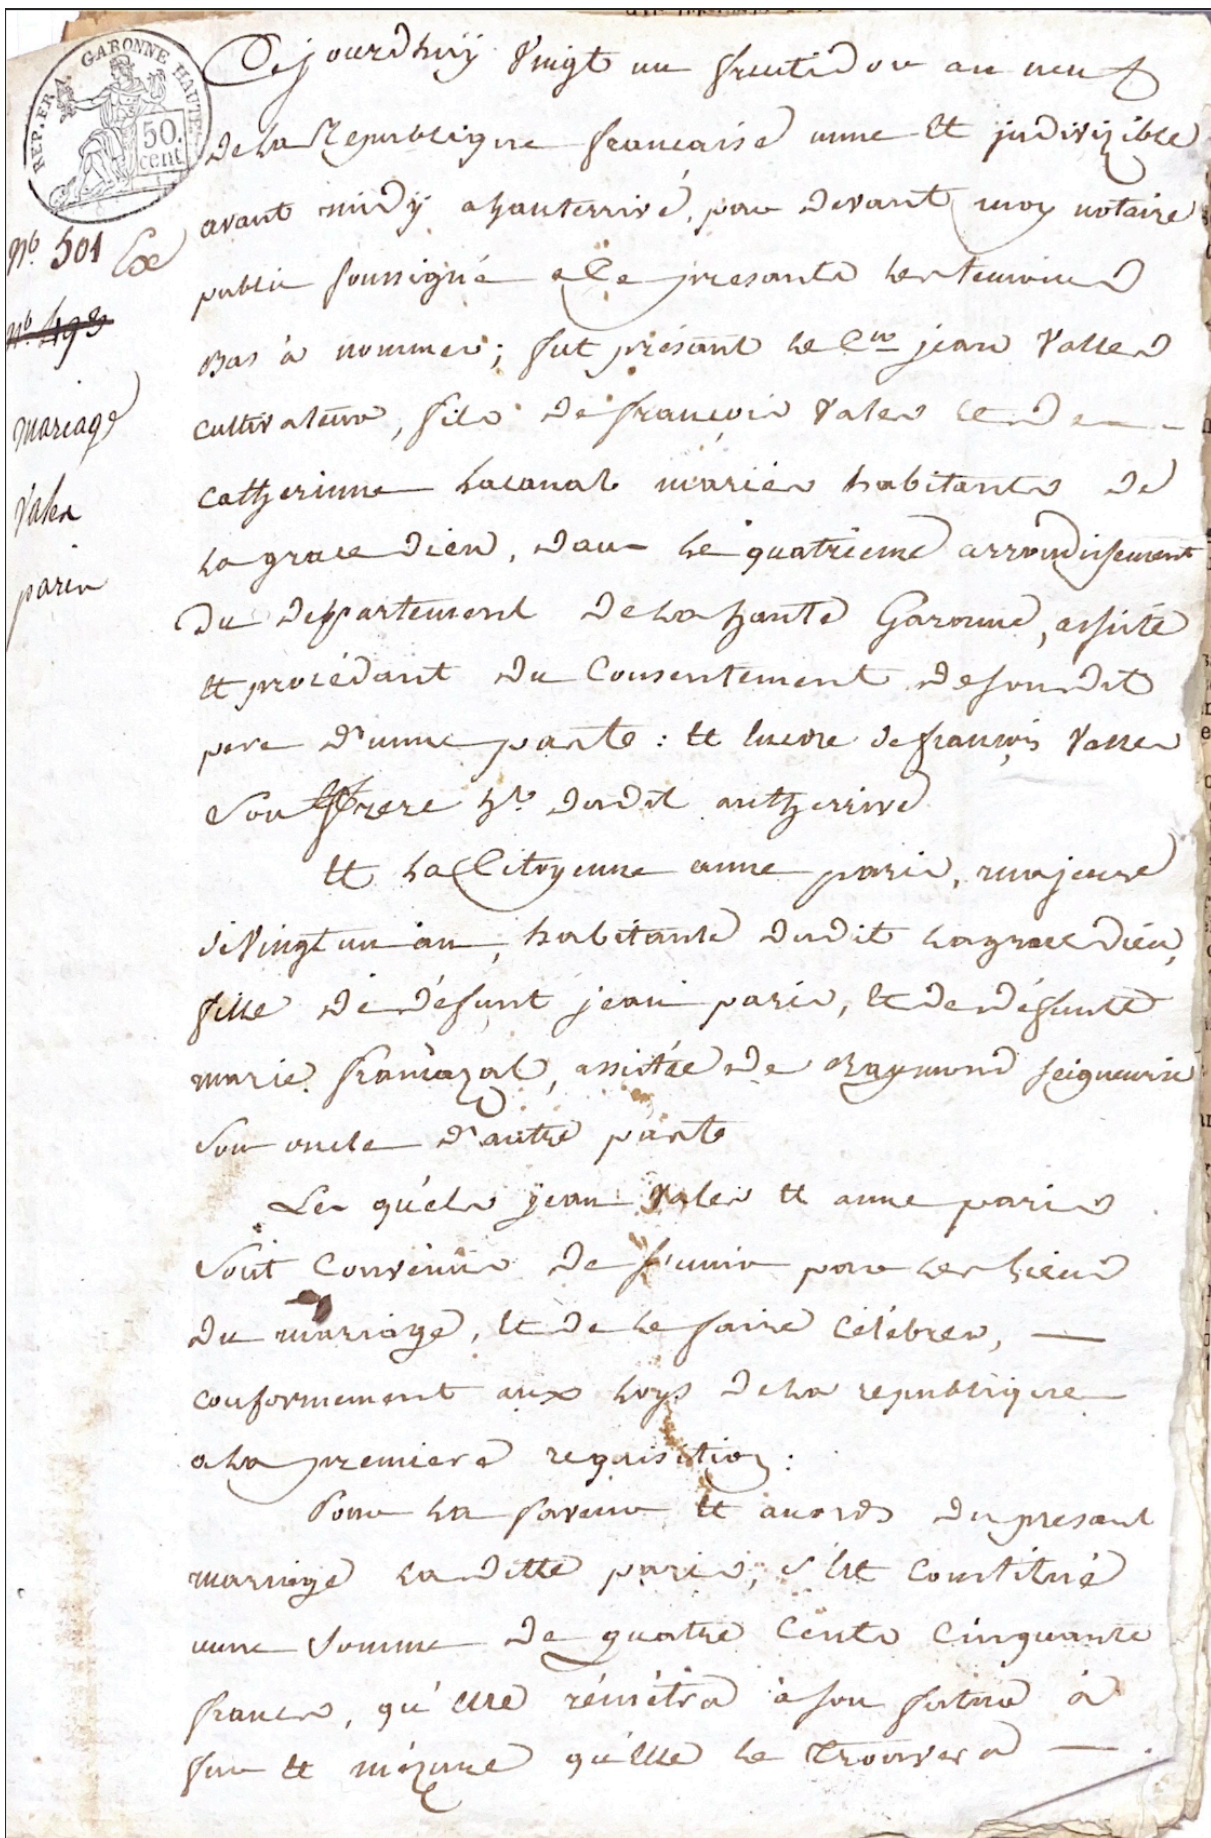 REP. FRA. GARONNE HAUTE.
50.
cent.
Cejourdhuÿ vingt un fructidor an neuf
de la Republique francaise unne et indivizible
avant midÿ a hauterrive, par devant moy notaire
public soussigné e presants les temoins
Bas à nommer; fut présant le Cen jean Valles
cultivateur, fils de françois Vales et de
catherinne Lacanal mariés habitants de
la grace dieu, dans le quatrieme arrondissement
du deppartement de la haute Garonne, assisté
et procédant du Consentement de son dit
pere d'unne parte : et encore de françois Valles
son frere ht dudit autherrive
et la Citoyenne anne paris, majeure
de vingt un an, habitante dudit lagrace dieu,
fille de défunt jean paris, et de défunte
marie francazal, assistée de Raymond seigneurie
son oncle d'autre parte
Les quéls jean Vales et anne paris
sont convenus de s'unir par les liens
du marriage, et de le faire célébrer,
conformement aux loys de la republique
a la premiere requisition :
Pour la faveur et acords du presant
marriage la ditte paris, s'est constitué
unne somme de quatre cents cinquante
francs, qu'elle rémétra à son futur à
fur et mézure qu'elle le trouvera
No. 501
No. 493
mariage
Vales
paris